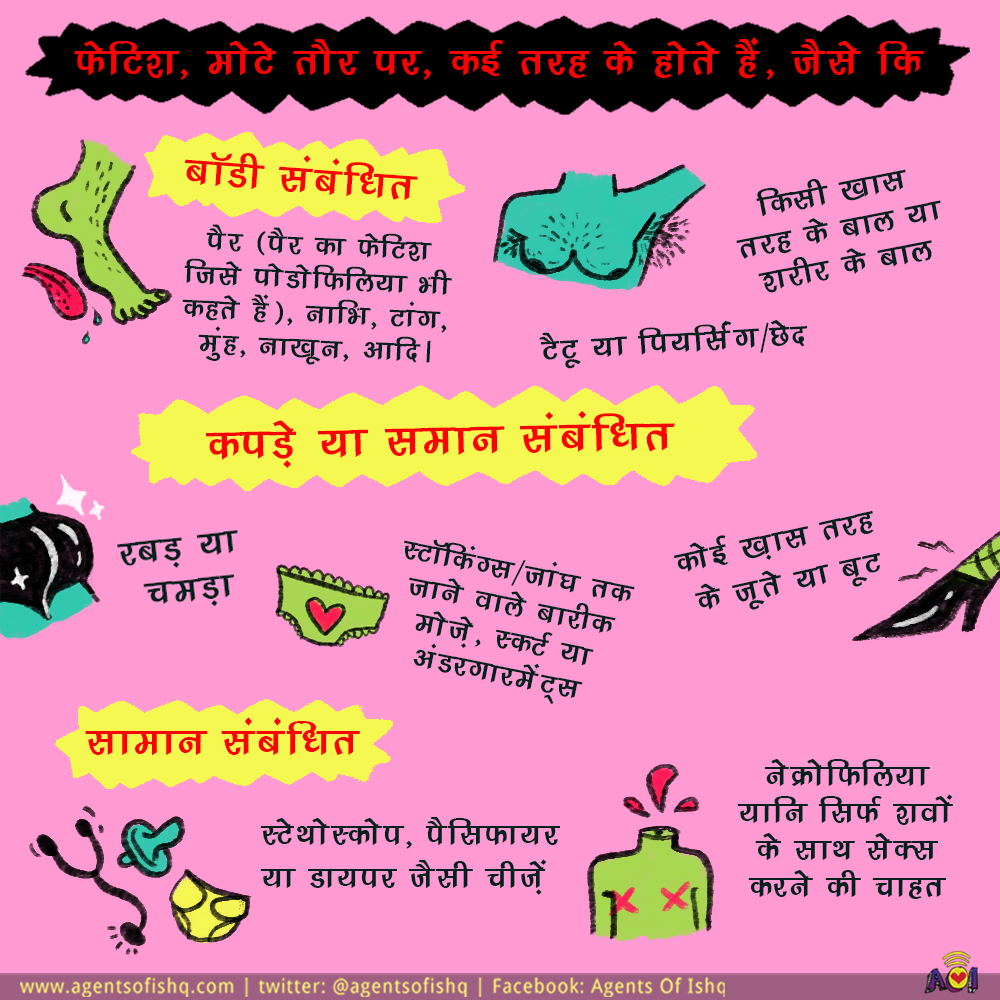 फेटिश, मोटे तौर पर, कई तरह के होते हैं, जैसे कि
बॉडी संबंधित
पैर (पैर का फेटिश
जिसे पोडोफिलिया भी
कहते हैं), नाभि, टांग,
मुंह, नाखून, आदि।
किसी खास
तरह के बाल या
शरीर के बाल
टैटू या पियर्सिंग/छेद
कपड़े या समान संबंधित
रबड़ या
चमड़ा
स्टॉकिंग्स/जांघ तक
जाने वाले बारीक
मोज़े, स्कर्ट या
अंडरगारमेंट्स
कोई ख़ास तरह
के जूते या बूट
सामान संबंधित
स्टेथोस्कोप, पैसिफायर
या डायपर जैसी चीज़ें
नेक्रोफिलिया
यानि सिर्फ शवों
के साथ सेक्स
करने की चाहत
AOI
www.agentsofishq.com | twitter: @agentsofishq | Facebook: Agents Of Ishq